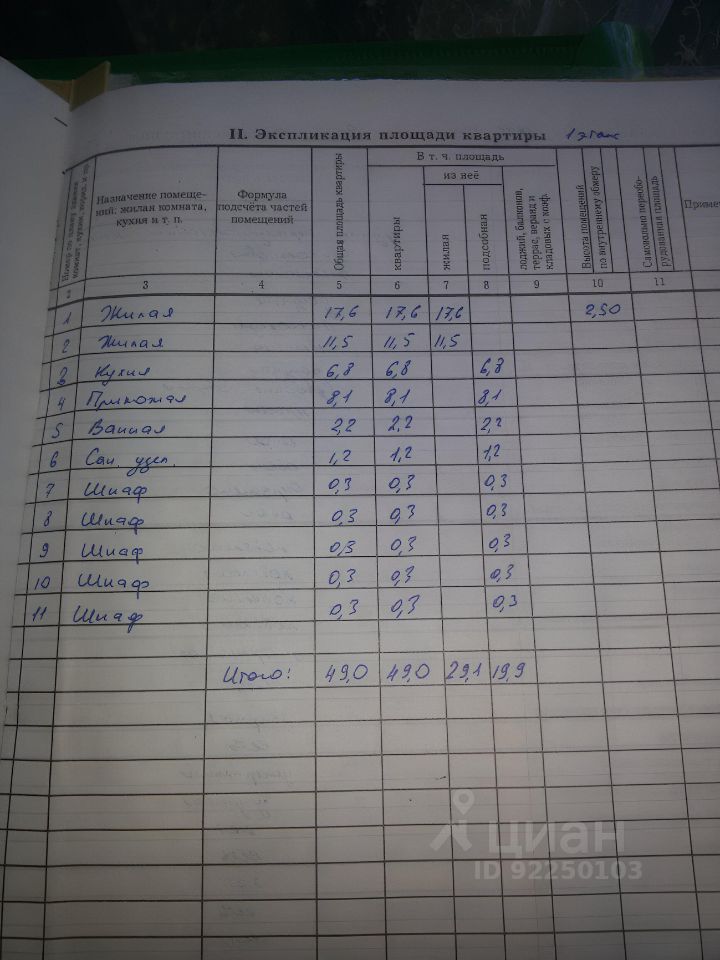 II. Экспликация площади квартиры 1 этаж
Назначение помеще-
ний: жилая комната,
кухня и т. п.
Формула
подсчёта частей
помещений
Общая площадь квартиры
В т. ч. площадь
квартиры
из неё
жилая
подсобная
лоджий, балконов,
террас, веранд и
кладовых с коэф.
Высота помещений
по внутреннему обмеру
Самовольно переобо-
рудованная площадь
3 4 5 6 7 8 9 10 11
1 Жилая 17,6 17,6 17,6 2,50
2 Жилая 11,5 11,5 11,5
3 Кухня 6,8 6,8 6,8
4 Прихожая 8,1 8,1 8,1
5 Ванная 2,2 2,2 2,2
6 Сан. узел. 1,2 1,2 1,2
7 Шкаф 0,3 0,3 0,3
8 Шкаф 0,3 0,3 0,3
9 Шкаф 0,3 0,3 0,3
10 Шкаф 0,3 0,3 0,3
11 Шкаф 0,3 0,3 0,3
Итого: 49,0 49,0 29,1 19,9
циан
ID 92250103